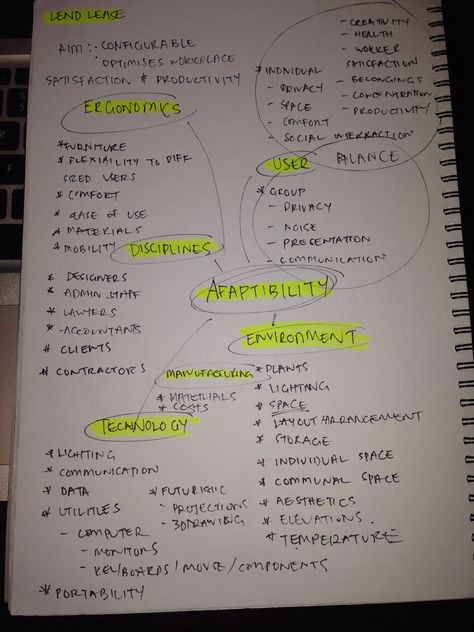 LEND LEASE
AIM :· CONFIGURABLE
· OPTIMISES WORKPLACE
SATISFACTION & PRODUCTIVITY
ERGONOMICS
* FURNITURE
* FLEXIBILITY TO DIFF
SIZED USERS
* COMFORT
* EASE OF USE
* MATERIALS
* MOBILITY
- CREATIVITY
- HEALTH
- WORKER
SATISFACTION
- BELONGINGS
- CONCENTRATION
- PRODUCTIVITY
* INDIVIDUAL
- PRIVACY
- SPACE
- COMFORT
- SOCIAL INTERACTION
USER BALANCE
* GROUP
- PRIVACY
- NOISE
- PRESENTATION
- COMMUNICATION
DISCIPLINES
* DESIGNERS
* ADMIN STAFF
* LAWYERS
* ACCOUNTANTS
* CLIENTS
* CONTRACTORS
ADAPTIBILITY
ENVIRONMENT
* PLANTS
* LIGHTING
* SPACE
* LAYOUT/ARRANGEMENT
* STORAGE
* INDIVIDUAL SPACE
* COMMUNAL SPACE
* AESTHETICS
* ELEVATIONS.
* TEMPERATURE
MANUFACTURING
* MATERIALS
* COSTS
TECHNOLOGY
* LIGHTING
* COMMUNICATION
* DATA
* UTILITIES
- COMPUTER
- MONITORS
- KEYBOARDS/MOUSE/COMPONENTS
* PORTABILITY
* FUTURISTIC
- PROJECTIONS
- 3D DRAWING